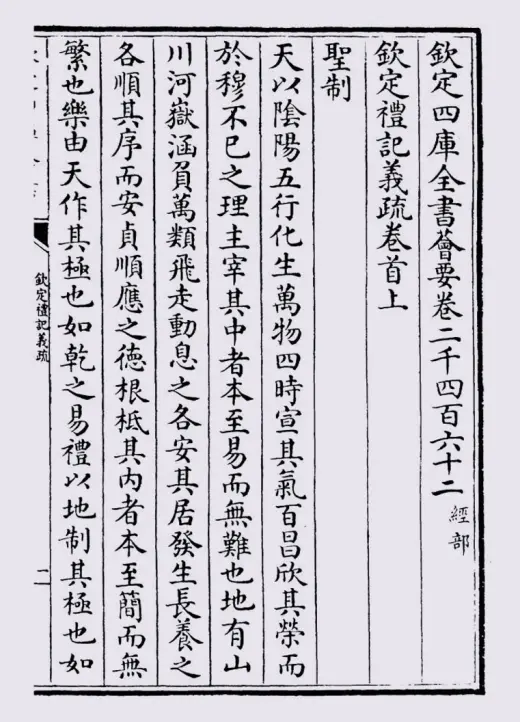 欽定四庫全書薈要卷二千四百六十二 經部
欽定禮記義疏卷首上
聖制
天以陰陽五行化生萬物四時宣其氣百昌欣其榮而
於穆不已之理主宰其中者本至易而無難也地有山
川河嶽涵負萬類飛走動息之各安其居發生長養之
各順其序而安貞順應之德根柢其内者本至簡而無
繁也樂由天作其極也如乾之易禮以地制其極也如
欽定禮記義疏
二